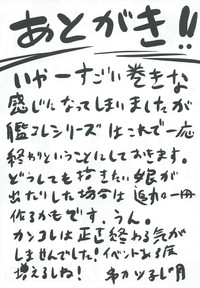 あとがき!!
いやーすごい巻きな
感じになってしまいましたが
艦コレシリーズはこれで一応
終わりということにしておきます。
どうしても描きたい娘が
出たりした場合は追加で一冊
作るかもです。うん。
カンコレは正直終わる気が
しませんでした!イベントある度
増えるしね!